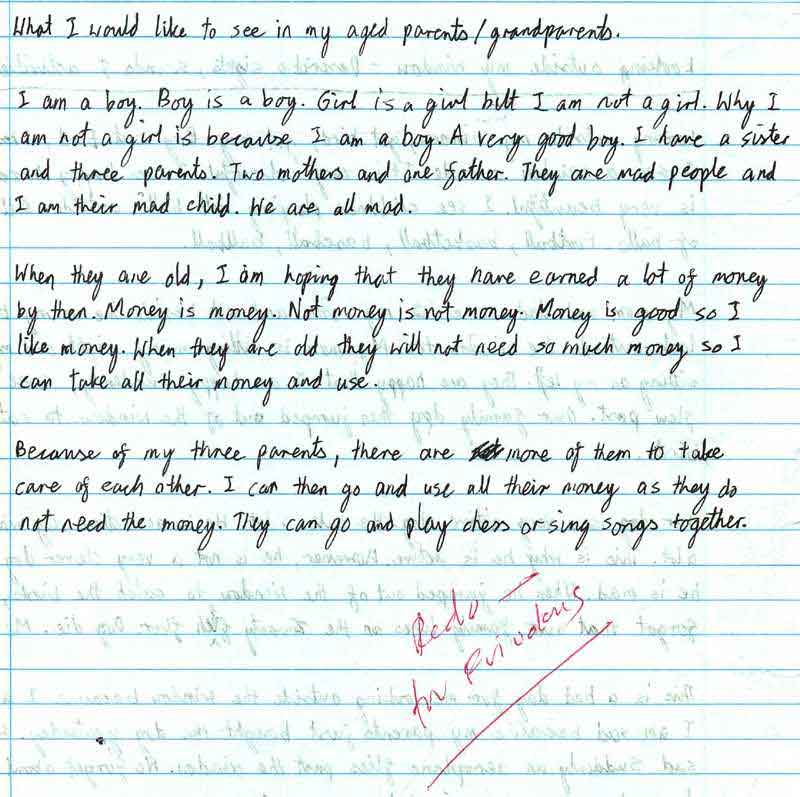 What I would like to see in my aged parents/grandparents.
I am a boy. Boy is a boy. Girl is a girl but I am not a girl. Why I
am not a girl is because I am a boy. A very good boy. I have a sister
and three parents. Two mothers and one father. They are mad people and
I am their mad child. We are all mad.
When they are old, I am hoping that they have earned a lot of money
by then. Money is money. Not money is not money. Money is good so I
like money. When they are old they will not need so much money so I
can take all their money and use.
Because of my three parents, there are more of them to take
care of each other. I can then go and use all their money as they do
not need the money. They can go and play chess or sing songs together.
Redo –